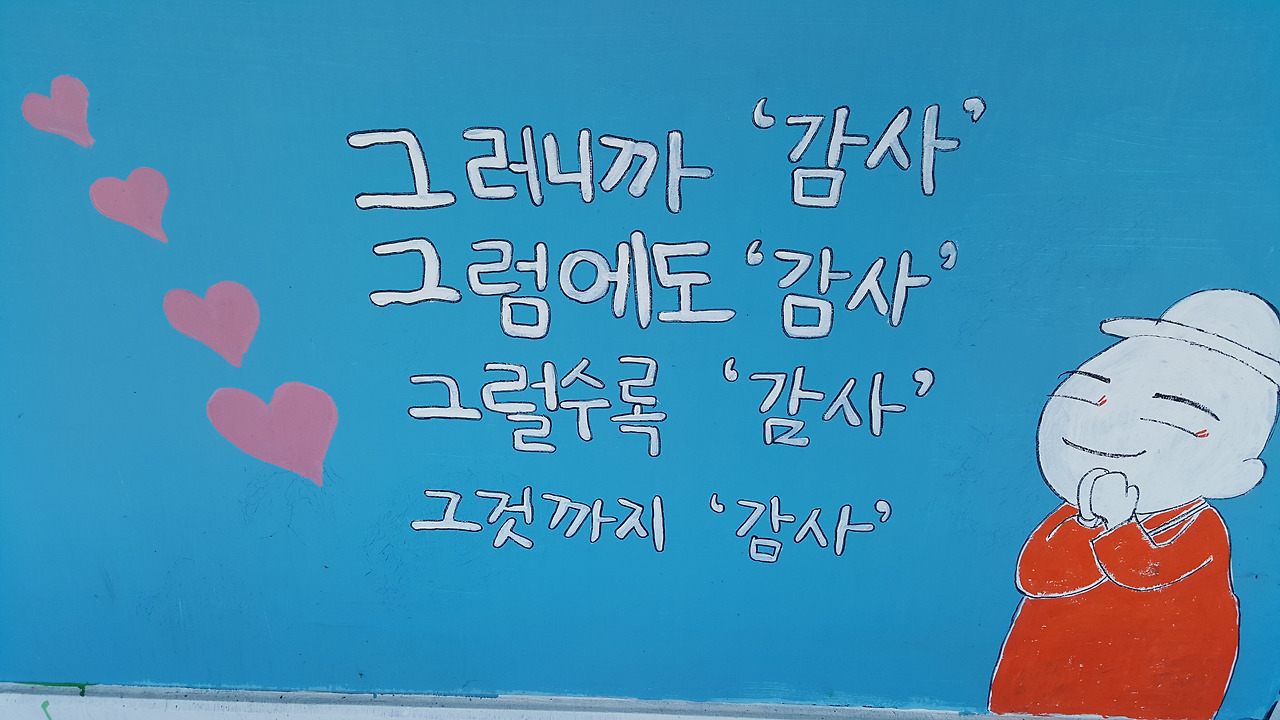 그러니까 ‘감사’
그럼에도 ‘감사’
그럴수록 ‘감사’
그것까지 ‘감사’